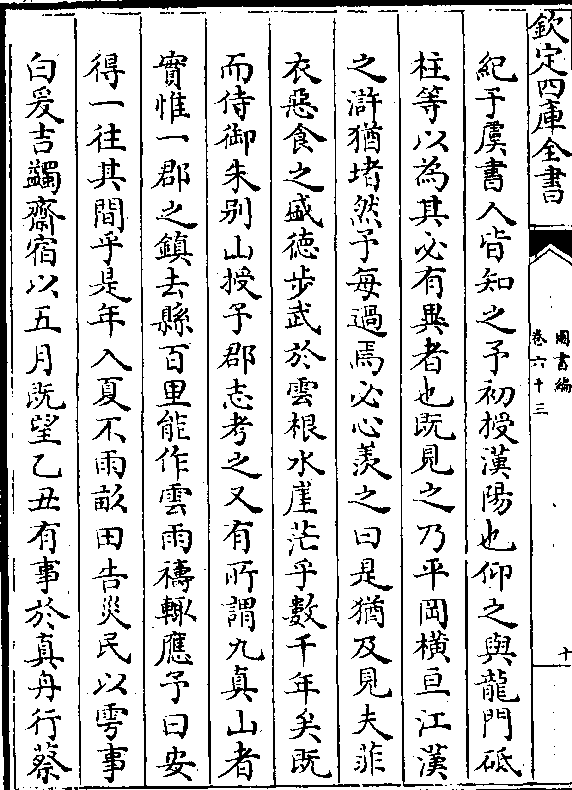 欽定四庫全書
圖書編
卷六十三
十
紀于虞書人皆知之予初授漢陽也仰之與龍門砥
柱等以為其必有異者也既見之乃平岡橫亘江漢
之滸猶堵然予每過焉必心羨之曰是猶及見夫菲
衣惡食之盛德步武於雲根水崖茫乎數千年矣既
而侍御朱别山授予郡志考之又有所謂九真山者
實惟一郡之鎮去縣百里能作雲雨禱輙應予曰安
得一往其間乎是年入夏不雨畝田告災民以雩事
白爰吉蠲齋宿以五月既望乙丑有事於真舟行蔡